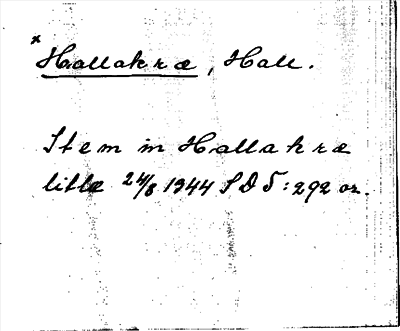 * Hallakræ, Hall.
Item in Hallakræ
litlæ 24/8 1344 SD 5:292 or.